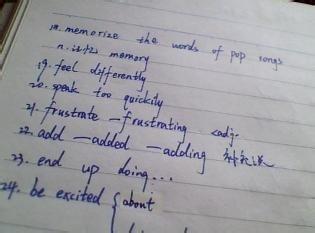 18. memorize the words of pop songs
n. 记忆 memory
19. feel differently
20. speak too quickily
21. frustrate — frustrating <adj.
22. add — added — adding 补充说
23. end up doing...
24. be excited { about